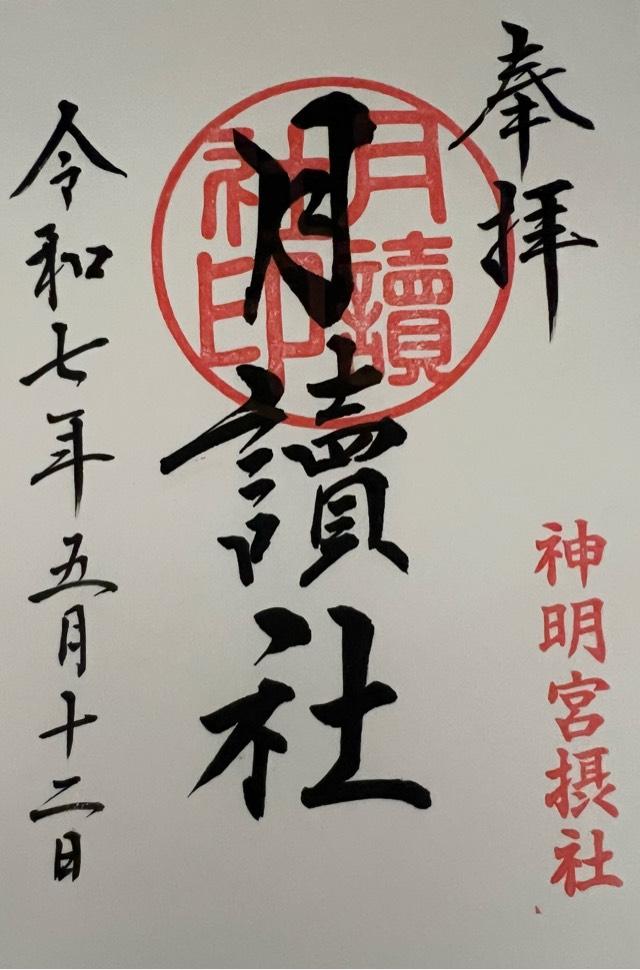 奉拝
神明宮摂社
月讀社
月讀社印
令和七年五月十二日